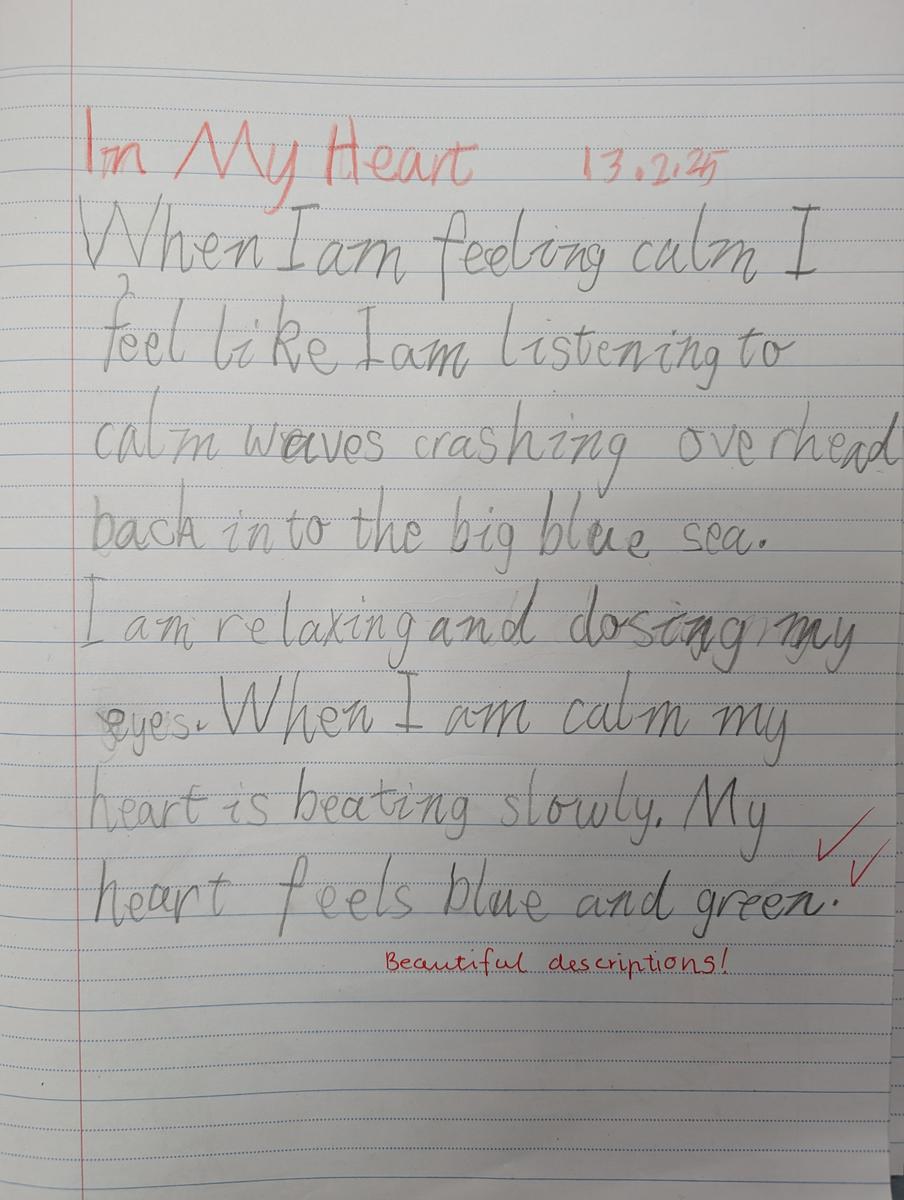 In My Heart 13.2.25
When I am feeling calm I
feel like I am listening to
calm waves crashing overhead
back into the big blue sea.
I am relaxing and closing my
eyes. When I am calm my
heart is beating slowly. My
heart feels blue and green.
Beautiful descriptions!